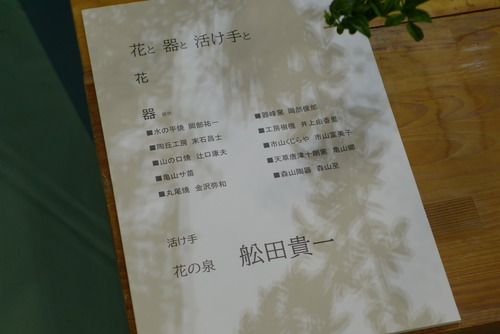 花と 器と 活け手と
花
器
■水の平焼 岡部祐一
■陶丘工房 末石昌士
■山の口焼 辻口康夫
■亀山サ笛
■丸尾焼 金沢弥和
■蔵々窯 岡部俊郎
■工房樹機 井上由香里
■市山くじらや 市山富美子
■天草唐津十朗窯 亀山郷
■森山陶器 森山至
活け手
花の泉 舩田貴一